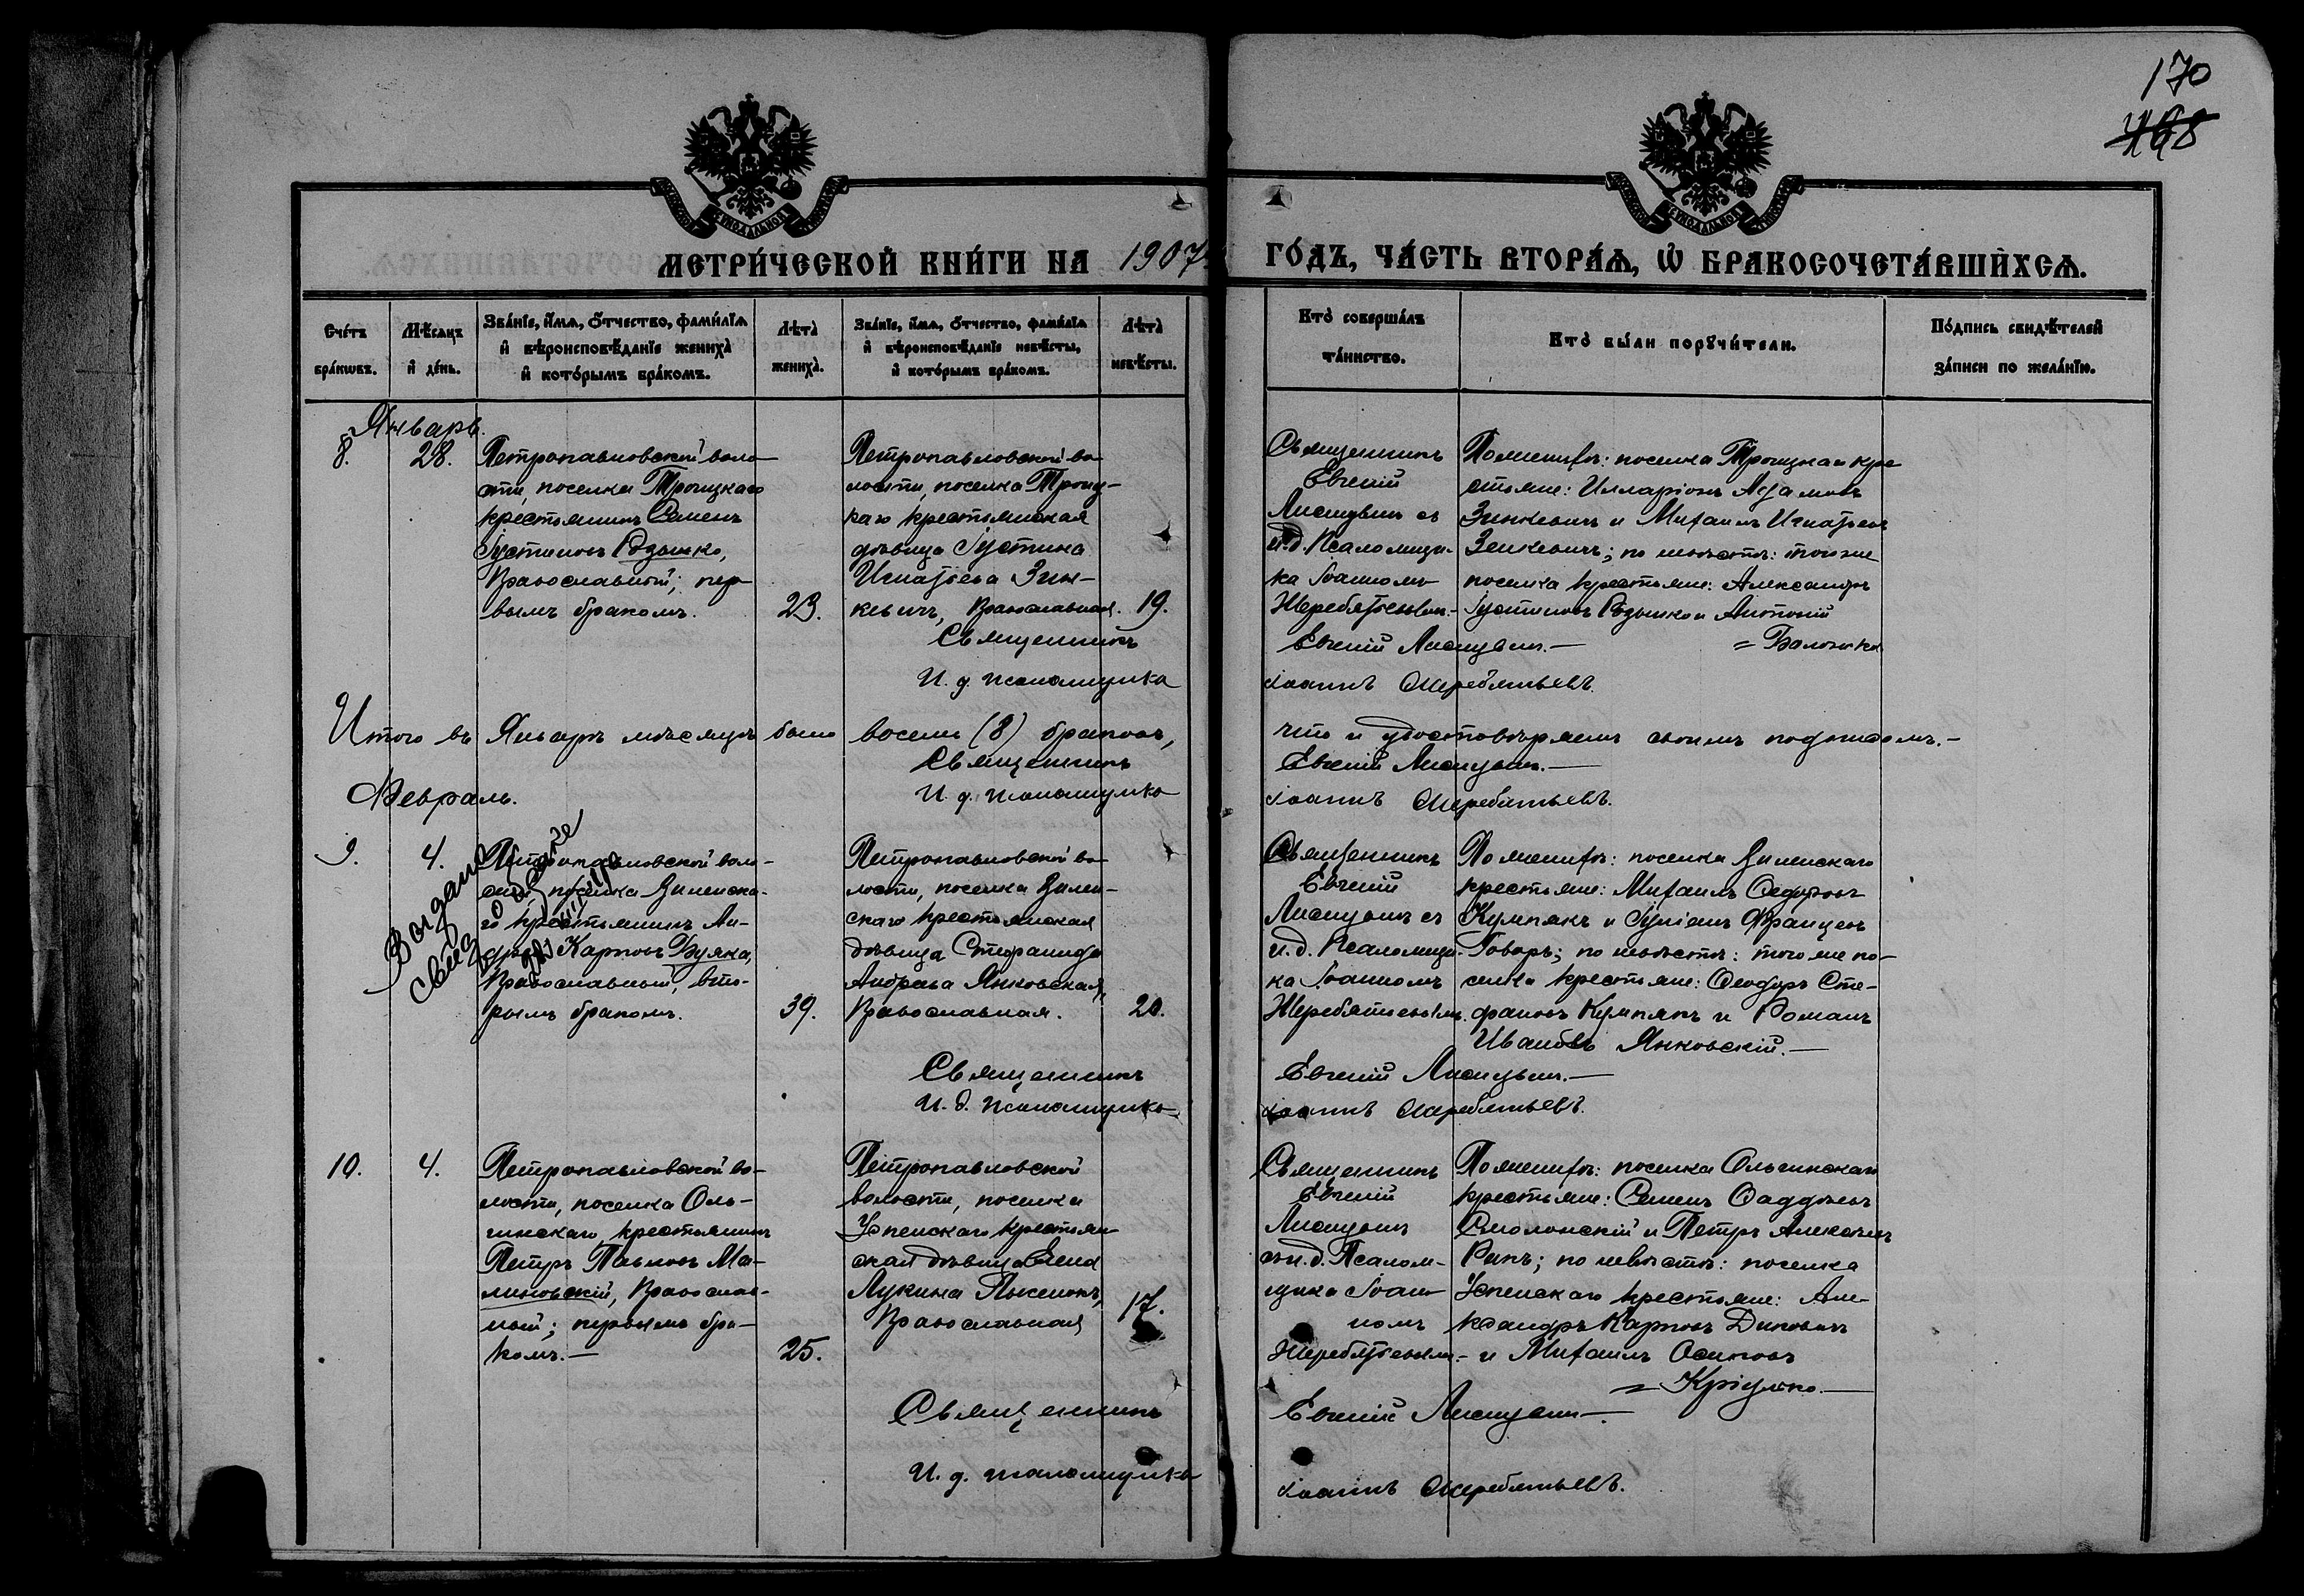 170
168
МЕТРИ́ЧЕСКОЙ КНИ́ГИ НА 1907
ГО́ДЪ, ЧА́СТЬ ВТОРА́Ѧ, Ѡ҆ БРАКОСОЧЕТА́ВШИХСѦ.
Сче́тъ бра́кωвъ.
Мѣ́сѧцъ и҆ де́нь.
Зва́нїе, и҆́мѧ, ѻ҆́тчество, фами́лїѧ и҆ вѣроисповѣ́данїе жениха̀ и҆ кото́рымъ бра́комъ.
Лѣта̀ жениха̀.
Зва́нїе, и҆́мѧ, ѻ҆́тчество, фами́лїѧ и҆ вѣроисповѣ́данїе невѣ́сты, и҆ кото́рымъ бра́комъ.
Лѣта̀ невѣ́сты.
Кто̀ соверша́лъ та́инство.
Кто̀ бы́ли порꙋчи́тели.
По́дпись свидѣ́телей за́писи по жела́нїю.
Январь.
8.
28.
Петропавловской воло-
сти, поселка Троицкаго
крестьянинъ Семенъ
Іустиновъ Родзынко,
Православный; пер-
вымъ бракомъ.
23.
Петропавловской во-
лости, поселка Троиц-
каго крестьянская
дѣвица Іустина
Игнатьева Зин-
кевичъ, Православная.
19.
Священникъ
Евгеній
Лисицынъ съ
и.д. Псаломщи-
ка Іоанномъ
Жеребятьевым.
По женихѣ: поселка Троицкаго кре
стьяне: Илларіонъ Адамовъ
Зинкевичъ и Михаилъ Игнатьевъ
Зинкевичъ; по невѣстѣ: того же
поселка крестьяне: Александръ
Іустиновъ Родзынко и Антоній
= Волотка
Священникъ Евгеній Лисицынъ.
И. д. псаломщика Іоаннъ Жеребятьевъ.
Итого въ Январѣ мѣсяцѣ было восемь (8) браковъ, что и удостовѣряемъ своимъ подписомъ.
Священникъ Евгеній Лисицынъ.
И. д. псаломщика Іоаннъ Жеребятьевъ.
Февраль.
9.
4.
Выдано
свид.
Петропавловской воло-
сти, поселка Виленска-
го крестьянинъ Ан-
дрей Карповъ Буяка,
Православный, вто-
рымъ бракомъ.
39.
Петропавловской во-
лости, поселка Вилен-
скаго крестьянская
дѣвица Стефанида
Андреева Янковская,
Православная.
20.
Священникъ
Евгеній
Лисицынъ съ
и.д. Псаломщи-
ка Іоанномъ
Жеребятьевым.
По женихѣ: поселка Виленскаго
крестьяне: Михаилъ Ѳедоровъ
Кумпякъ и Іуліанъ Францевъ
Говоръ; по невѣстѣ: того же по-
селка крестьяне: Ѳеодоръ Сте-
фановъ Кумпякъ и Романъ
Ивановъ Янковскій.
Священникъ Евгеній Лисицынъ.
И. д. псаломщика Іоаннъ Жеребятьевъ.
10.
4.
Петропавловской во-
лости, поселка Оль-
гинскаго, крестьянинъ
Петръ Павловъ Ма-
линовскій, Православ-
ный; первымъ бра-
комъ.
25.
Петропавловской
волости, поселка
Успенскаго крестьян
ская дѣвица Елена
Лукина
Православная
17.
Священникъ
Евгеній
Лисицынъ
съ и.д. Псалом-
щика Іоан
номъ
Жеребятьевым.
По женихѣ: поселка Ольгинскаго
крестьяне: Семенъ Ѳаддѣевъ
Смолонскій и Петръ Алексѣевъ
по невѣстѣ: поселка
Успенскаго крестьяне: Але-
ксандръ Карповъ Диковичъ
и Михаилъ Осиповъ
=
Священникъ Евгеній Лисицынъ.
И. д. псаломщика Іоаннъ Жеребятьевъ.